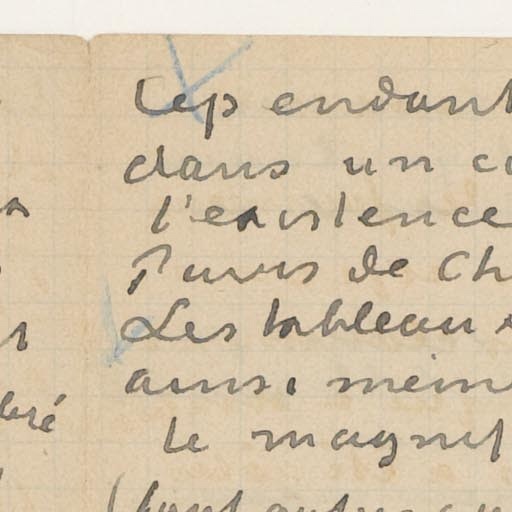 Cependant
dans un co
l'existence
Puvis de Ch
Les tableau
ainsi mem
le magnif